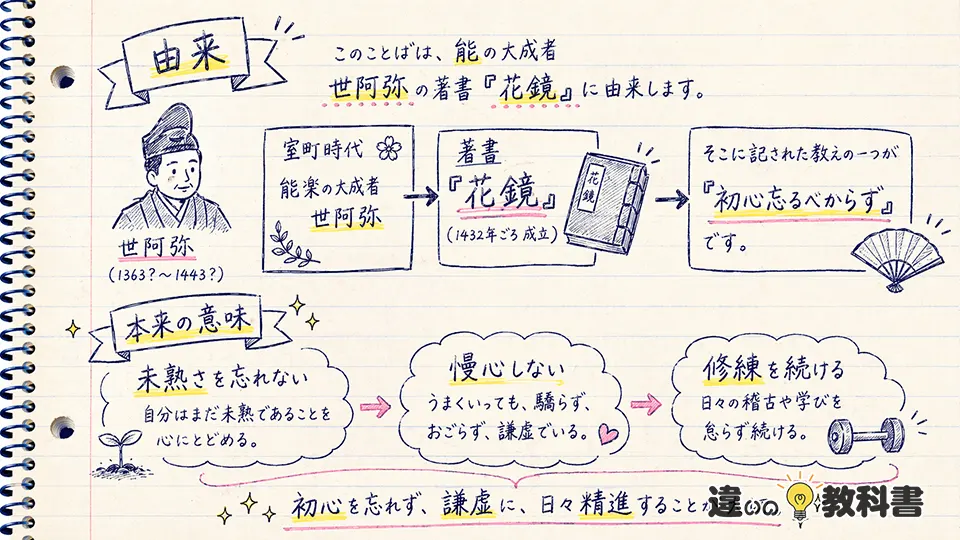 由来
このことばは、能の大成者
世阿弥の著書『花鏡』に由来します。
世阿弥
(1363?～1443?)
室町時代
能楽の大成者
世阿弥
著書
『花鏡』
(1432年ごろ成立)
花鏡
そこに記された教えの一つが
『初心忘るべからず』
です。
本来の意味
未熟さを忘れない
自分はまだ未熟であることを
心にとどめる。
慢心しない
うまくいっても、驕らず、
おごらず、謙虚でいる。
修練を続ける
日々の稽古や学びを
怠らず続ける。
初心を忘れず、謙虚に、日々精進すること
違いの教科書